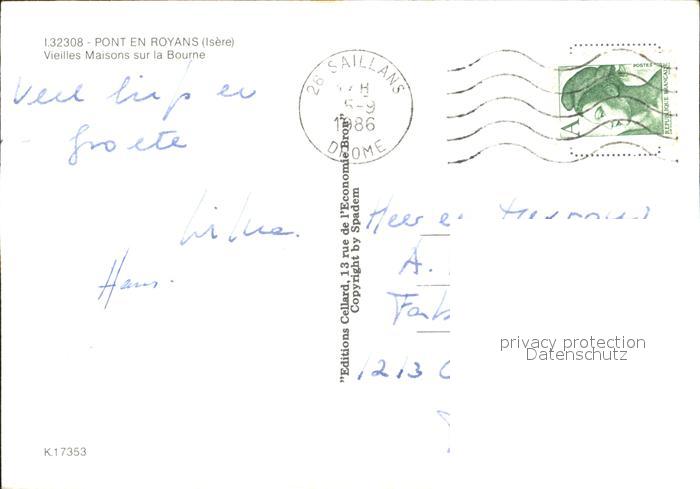 I.32308 - PONT EN ROYANS (Isère)
Vieilles Maisons sur la Bourne
Veel liefs en
Groete
Hans.
K.17353
26 SAILLANS
5-9
1986
DROME
"Editions Cellard, 13 rue de l'Economie Bron"
Copyright by Spadem
POSTES
REPUBLIQUE FRANÇAISE
A
Heer en
A.
1213
privacy protection
Datenschutz